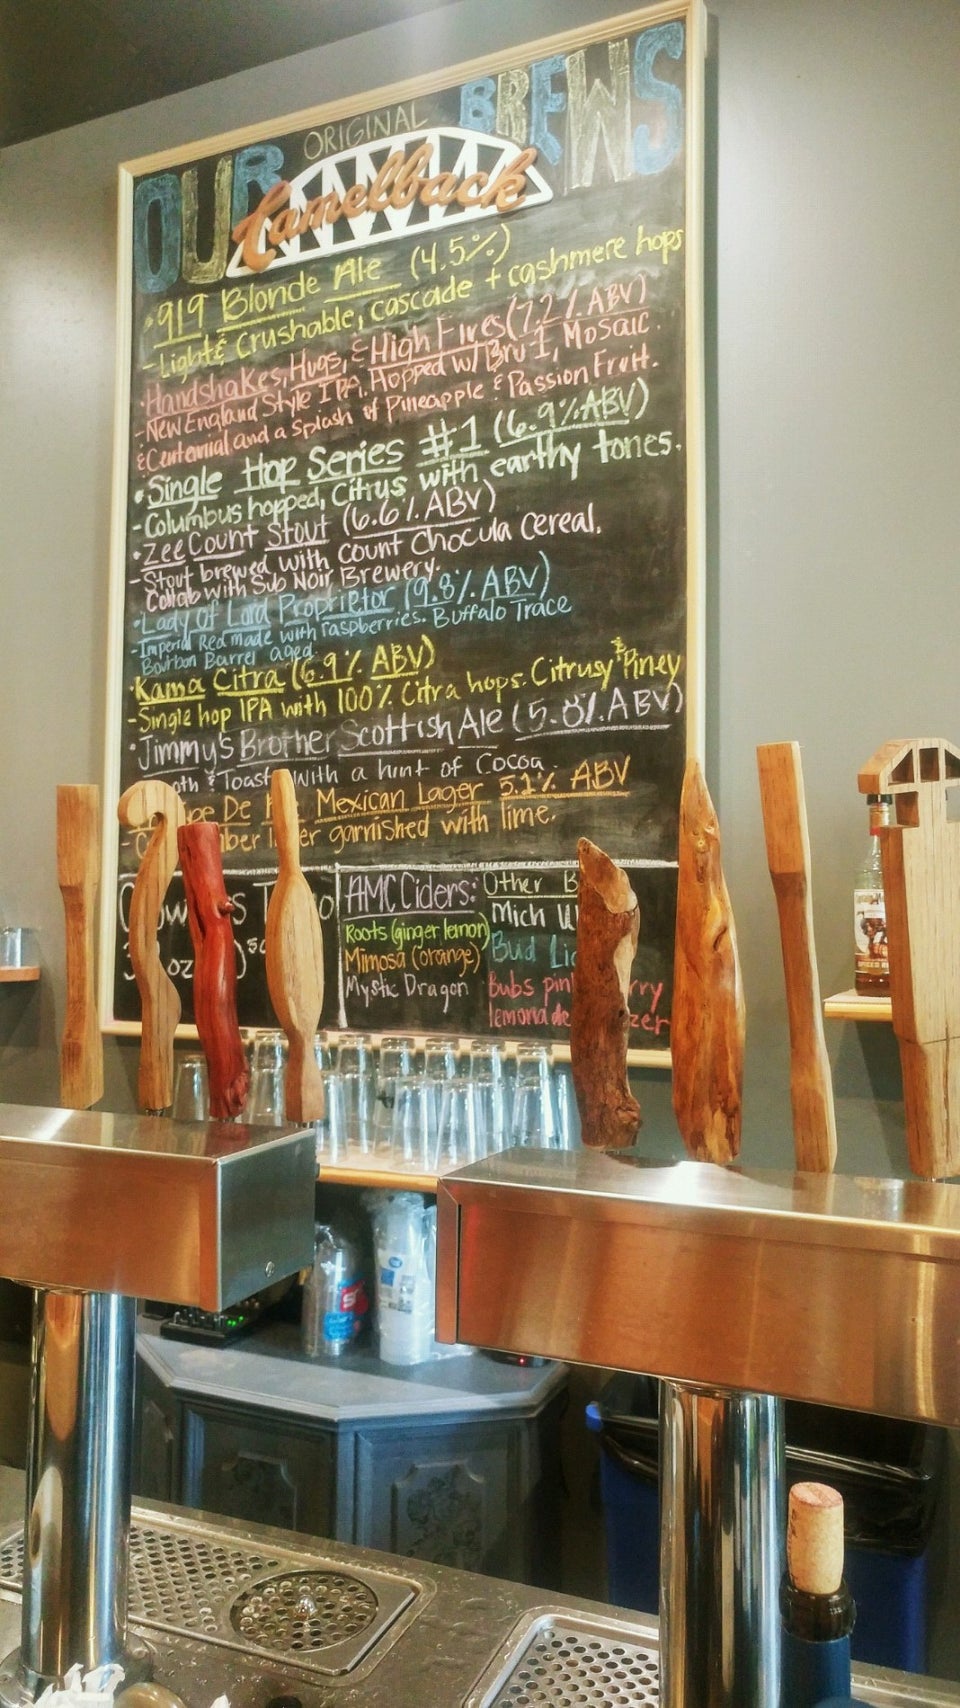 OUR ORIGINAL BREWS
Camelback
• 919 Blonde Ale (4.5%)
- Light & Crushable, cascade + cashmere hops
• Handshakes, Hugs, & High Fives (7.2% ABV)
- New England Style IPA. Hopped w/ Bru 1, Mosaic.
& Centennial and a splash of Pineapple & Passion Fruit.
• Single Hop Series #1 (6.9% ABV)
- Columbus hopped, Citrus with earthy tones.
• Zee Count Stout (6.6% ABV)
- Stout brewed with Count Chocula Cereal.
Collab with Sub Noir Brewery.
• Lady of Lord Proprietor (9.8% ABV)
- Imperial Red made with raspberries. Buffalo Trace
Bourbon Barrel aged.
• Kama Citra (6.9% ABV)
- Single hop IPA with 100% Citra hops. Citrusy & Piney
• Jimmy's Brother Scottish Ale (5.8% ABV)
oth & Toast With a hint of Cocoa
De Mexican Lager 5.2% ABV
garnished with lime.
AMC Ciders:
Roots (ginger lemon)
Mimosa (orange)
Mystic Dragon
Other B
Mich Ul
Bud Li
Bubs pink rry
lemonade zer
oz
SPICED